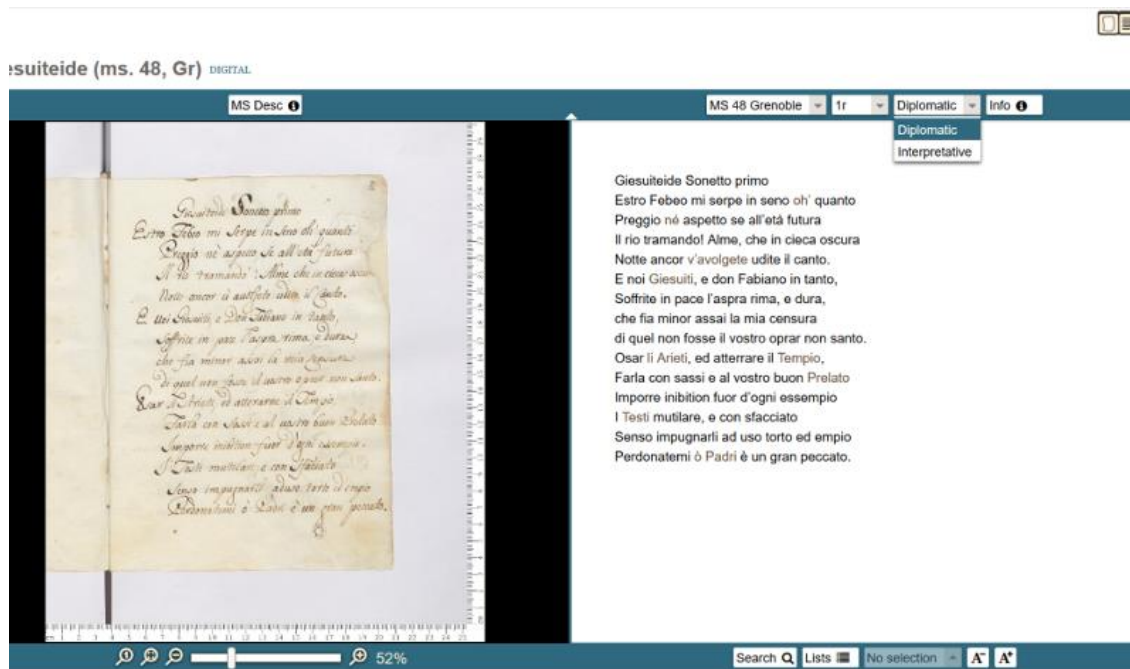 esuiteide (ms. 48, Gr) DIGITAL
MS Desc
MS 48 Grenoble 1r Diplomatic Info
Diplomatic
Interpretative
Giesuiteide Sonetto primo
Estro Febeo mi serpe in seno oh' quanto
Preggio né aspetto se all'etá futura
Il rio tramando! Alme, che in cieca oscura
Notte ancor v'avolgete udite il canto.
E voi Giesuiti, e Don Fabiano in tanto,
Soffrite in pace l'aspra rima, e dura,
che fia minor assai la mia censura
di quel non fosse il vostro oprar non santo.
Osar li Arieti, ed atterrare il Tempio,
Farla con Sassi e al vostro buon Prelato
Imporre inibition fuor d'ogni essempio.
I Testi mutilare, e con sfacciato
Senso impugnarli ad uso torto ed empio
Perdonatemi ò Padri è un gran peccato.
Giesuiteide Sonetto primo
Estro Febeo mi serpe in seno oh' quanto
Preggio né aspetto se all'etá futura
Il rio tramando! Alme, che in cieca oscura
Notte ancor v'avolgete udite il canto.
E noi Giesuiti, e don Fabiano in tanto,
Soffrite in pace l'aspra rima, e dura,
che fia minor assai la mia censura
di quel non fosse il vostro oprar non santo.
Osar li Arieti, ed atterrare il Tempio,
Farla con sassi e al vostro buon Prelato
Imporre inibition fuor d'ogni essempio
I Testi mutilare, e con sfacciato
Senso impugnarli ad uso torto ed empio
Perdonatemi ò Padri è un gran peccato.
52%
Search Lists No selection A- A+